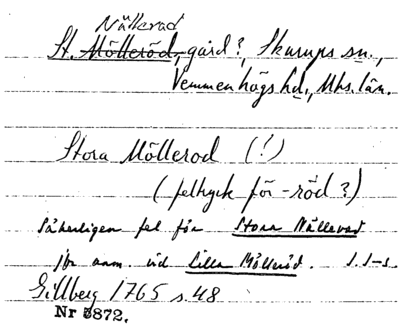 Nällevad
St. Mölleröd, gård?, Skurups sn.,
Vemmenhögs hd., Mhs. län.
Stora Möllerod (!)
(feltryck för -röd?)
Säkerligen fel för Stora Nällevad
jfr anm. vid Lilla Mölleröd. I. I-s.
Gillberg 1765 s. 48
Nr 3872.